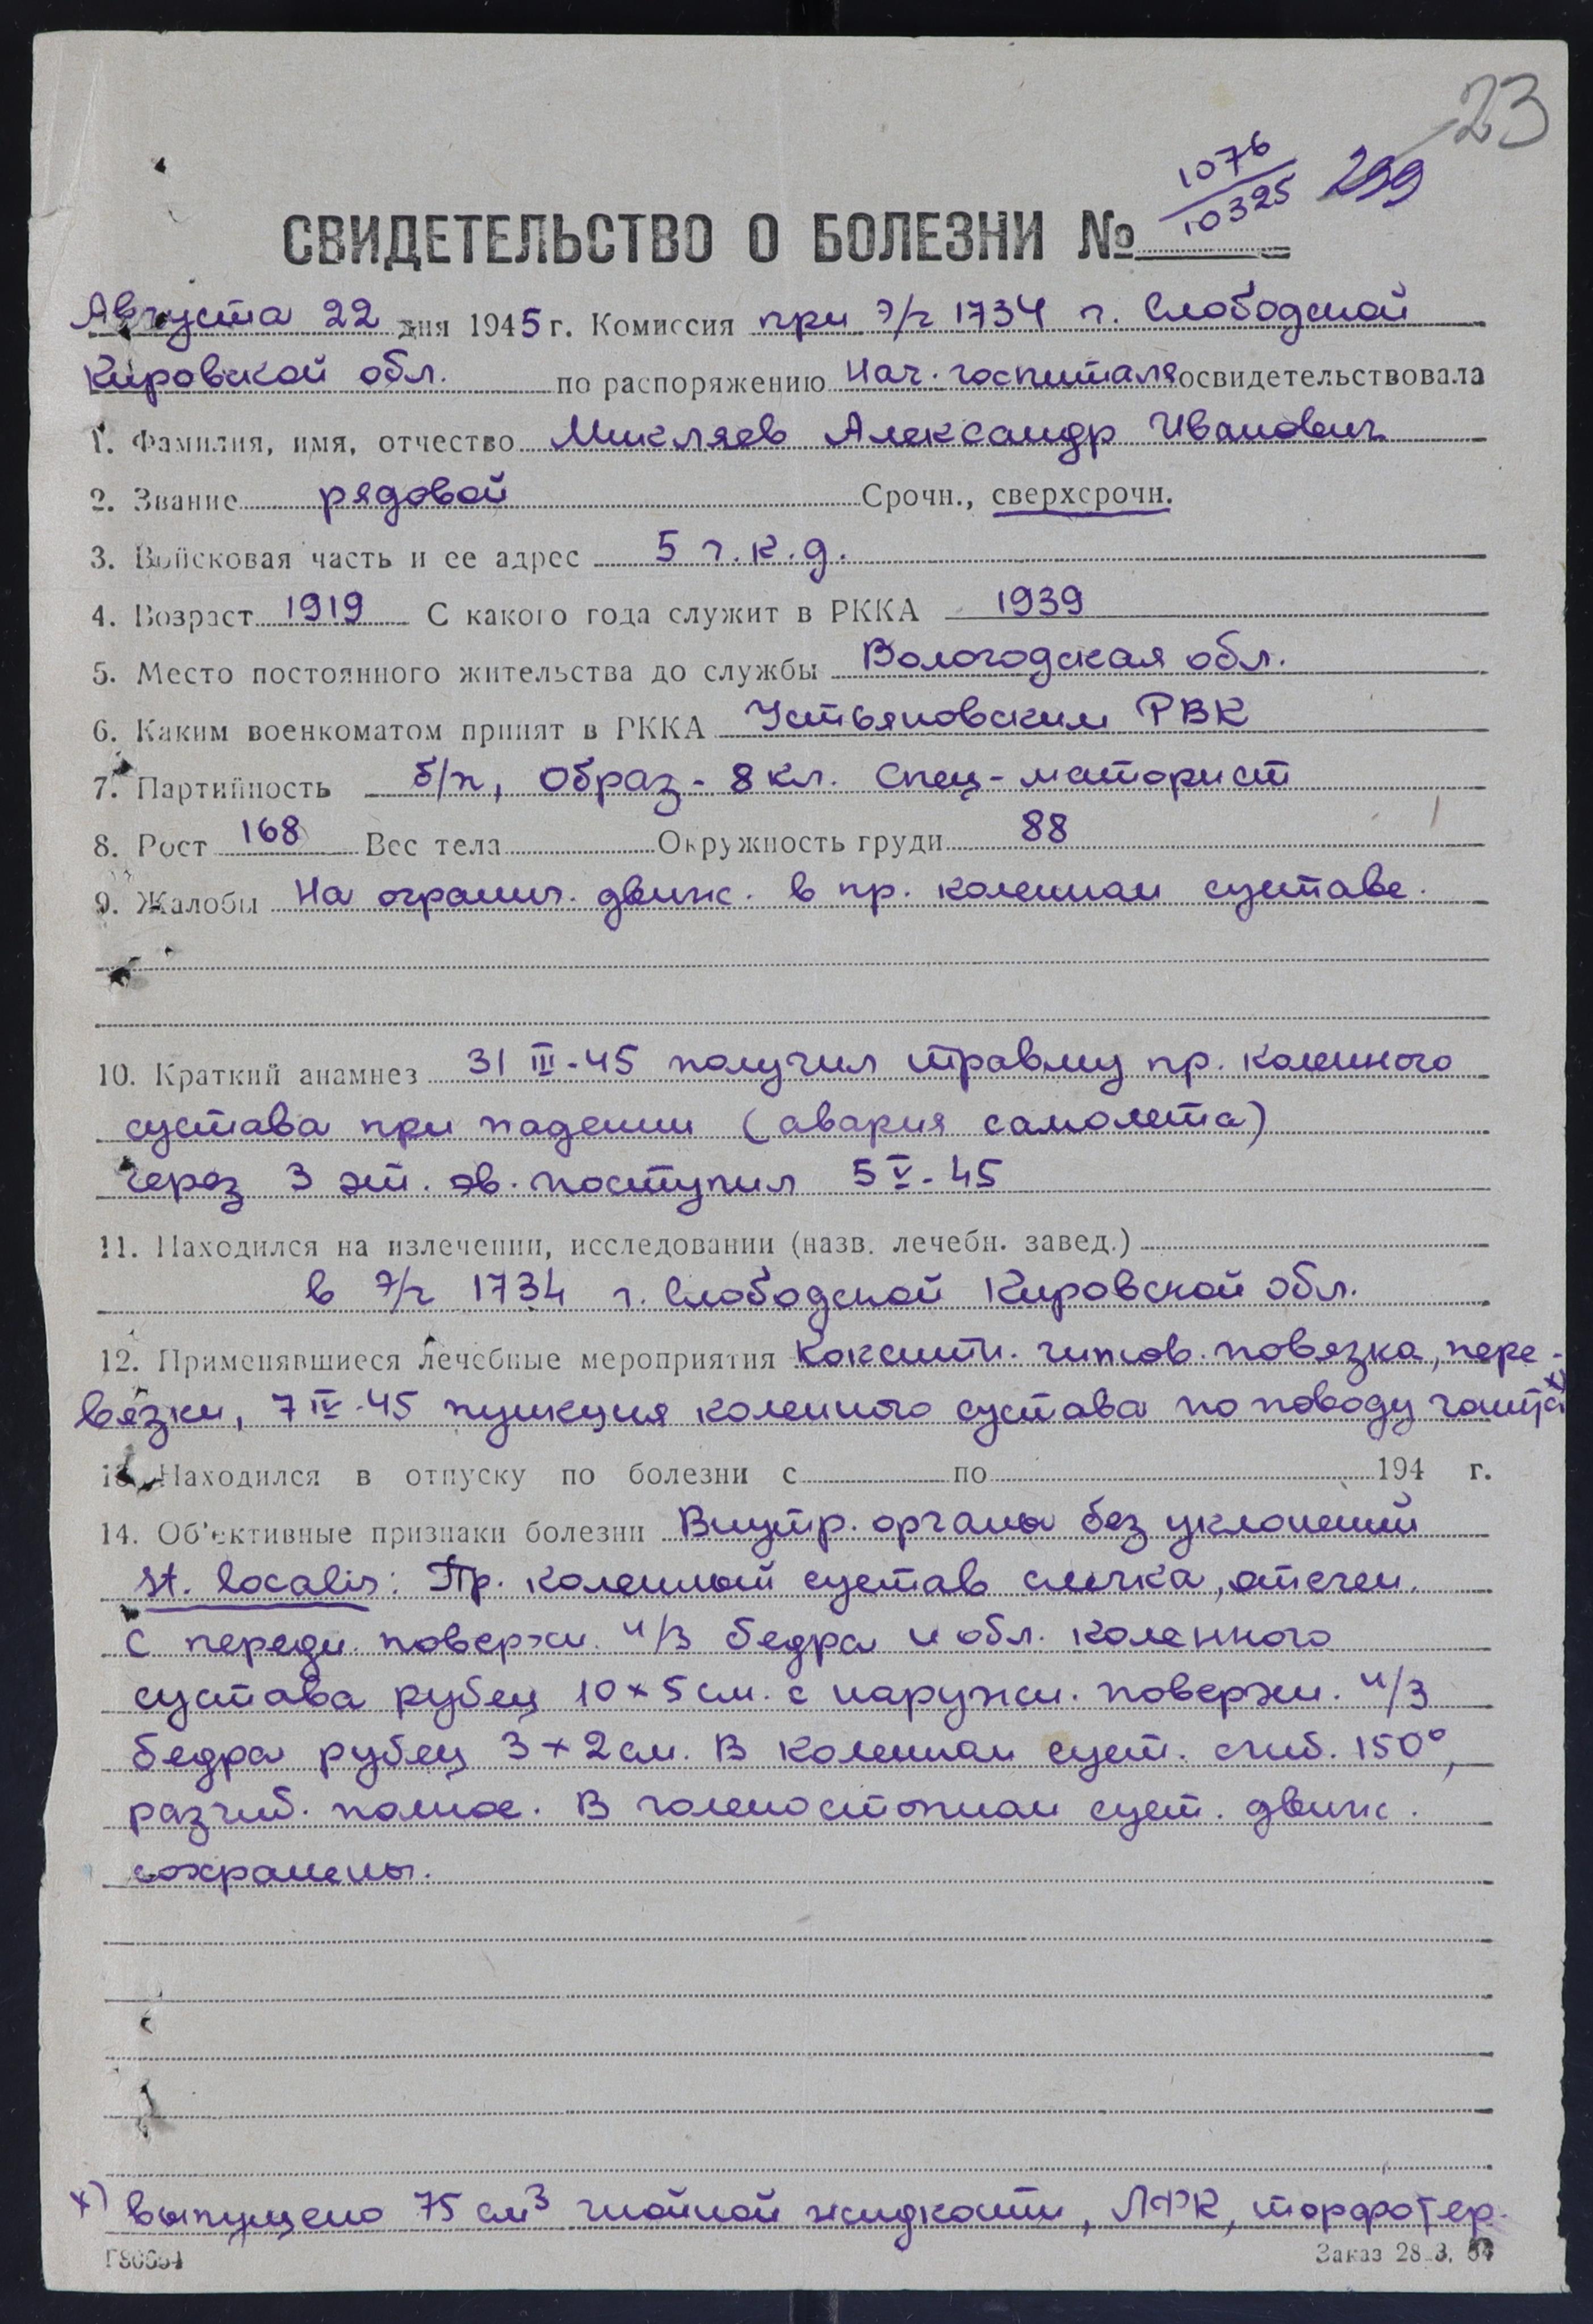 23
1076
10325
299
СВИДЕТЕЛЬСТВО О БОЛЕЗНИ №
Августа 22 дня 1945 г. Комиссия при э/г 1734 г. Слободской
Кировской обл. по распоряжению Нач. госпиталя освидетельствовала
1. Фамилия, имя, отчество Микляев Александр Иванович
2. Звание рядовой Срочн., сверхсрочн.
3. Войсковая часть и ее адрес 5 г.к.д.
4. Возраст 1919 С какого года служит в РККА 1939
5. Место постоянного жительства до службы Вологодская обл.
6. Каким военкоматом принят в РККА Устьяновским РВК
7. Партийность б/п, образ - 8 кл. спец - моторист
8. Рост 168 Вес тела Окружность груди 88
9. Жалобы На огранич. движ. в пр. коленном суставе.
10. Краткий анамнез 31 III-45 получил травму пр. коленного
сустава при падении (авария самолета)
Через 3 эт. эв. поступил 5 V-45
11. Находился на излечении, исследовании (назв. лечебн. завед.)
в э/г 1734 г. Слободской Кировской обл.
12. Применявшиеся лечебные мероприятия Кокситн. гипсов. повязка, пере-
вязки, 7 IV-45 пункция коленного сустава по поводу гонита x)
13. Находился в отпуску по болезни с по 194 г.
14. Об'ективные признаки болезни Внутр. органы без уклонений
St. localis: Пр. коленный сустав слегка отечен.
С передн. поверхн. н/3 бедра и обл. коленного
сустава рубец 10×5 см. с наружн. поверхн. н/3
бедра рубец 3×2 см. В коленном суст. сгиб. 150°,
разгиб. полное. В голеностопном суст. движ.
сохранены.
x) выпущено 75 см³ гнойной жидкости, ЛФК, торфотер.
Г80694
Заказ 28 3.